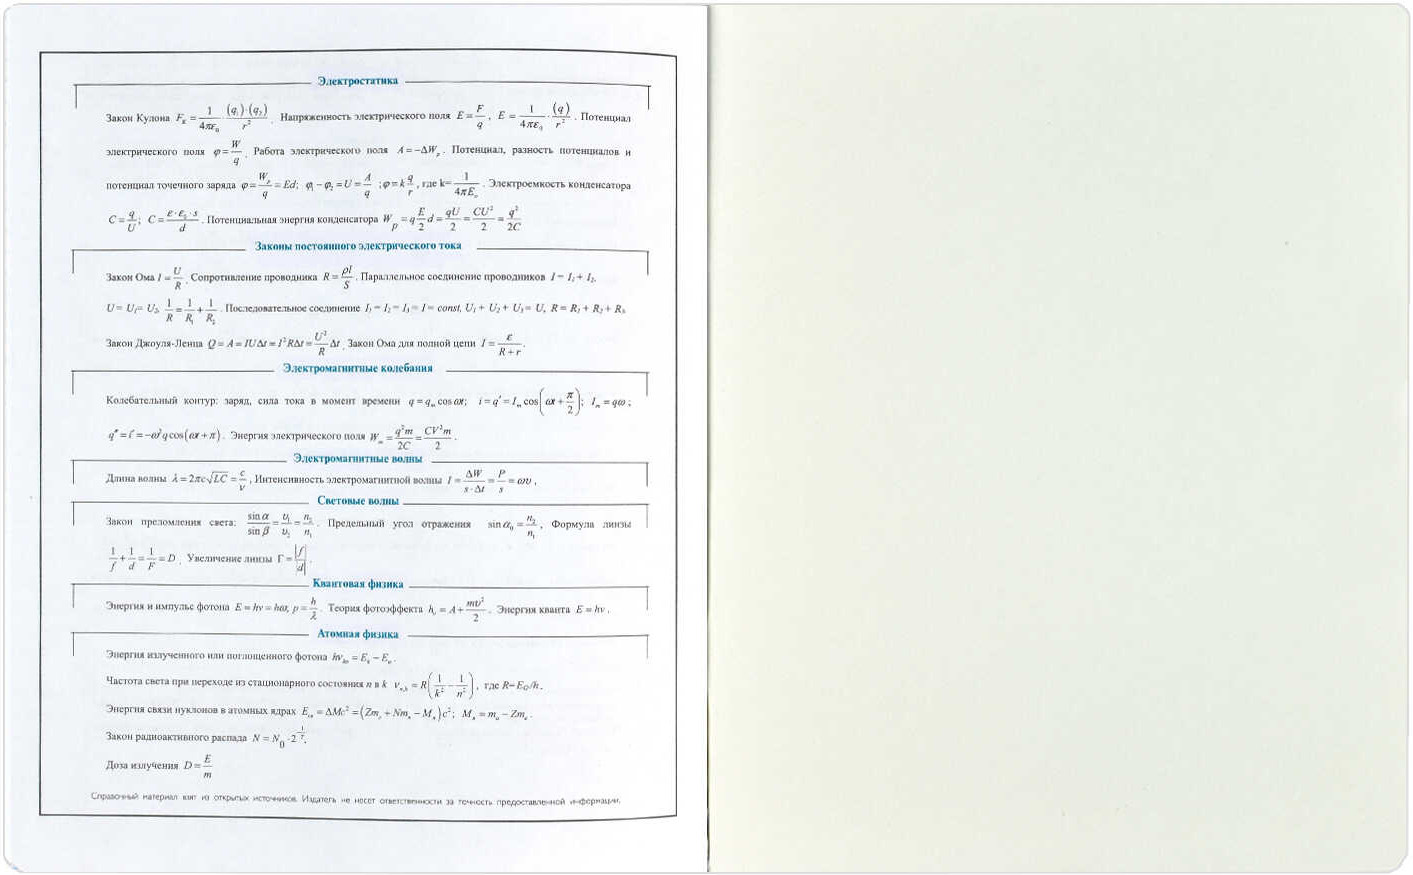 Электростатика
Закон Кулона F_K = 1/(4πε₀) · (q₁)·(q₂)/r². Напряженность электрического поля E = F/q, E = 1/(4πε₀) · (q)/r². Потенциал
электрического поля φ = W/q. Работа электрического поля A = −ΔW_p. Потенциал, разность потенциалов и
потенциал точечного заряда φ = W_p/q = Ed; φ₁ − φ₂ = U = A/q ; φ = k q/r, где k= 1/(4πE_o). Электроемкость конденсатора
C = q/U; C = ε·ε₀·s/d. Потенциальная энергия конденсатора W_p = q E/2 d = qU/2 = CU²/2 = q²/2C
Законы постоянного электрического тока
Закон Ома I = U/R. Сопротивление проводника R = ρl/S. Параллельное соединение проводников I = I₁ + I₂,
U = U₁= U₂, 1/R = 1/R₁ + 1/R₂. Последовательное соединение I₁ = I₂ = I₃ = I = const, U₁ + U₂ + U₃ = U, R = R₁ + R₂ + R₃.
Закон Джоуля-Ленца Q = A = IUΔt = I²RΔt = U²/R Δt. Закон Ома для полной цепи I = ε/(R + r).
Электромагнитные колебания
Колебательный контур: заряд, сила тока в момент времени q = q_m cos ωt; i = q′ = I_m cos(ωt + π/2); I_m = qω ;
q″ = i′ = −ω²q cos(ωt + π). Энергия электрического поля W_m = q²m/2C = CV²m/2.
Электромагнитные волны
Длина волны λ = 2πc√LC = c/ν, Интенсивность электромагнитной волны I = ΔW/(s·Δt) = P/s = ωυ,
Световые волны
Закон преломления света: sin α/sin β = υ₁/υ₂ = n₂/n₁. Предельный угол отражения sin α₀ = n₂/n₁, Формула линзы
1/f + 1/d = 1/F = D. Увеличение линзы Г = |f/d|.
Квантовая физика
Энергия и импульс фотона E = hν = hω, p = h/λ. Теория фотоэффекта h_ν = A + mυ²/2. Энергия кванта E = hν.
Атомная физика
Энергия излученного или поглощенного фотона hν_kn = E_k − E_n.
Частота света при переходе из стационарного состояния n в k ν_n,k = R(1/k² − 1/n²), где R=E₀/h.
Энергия связи нуклонов в атомных ядрах E_св = ΔMc² = (Zm_p + Nm_n − M_я)c²; M_я = m_a − Zm_e.
Закон радиоактивного распада N = N₀ · 2^(−t/T).
Доза излучения D = E/m
Справочный материал взят из открытых источников. Издатель не несет ответственности за точность предоставленной информации.